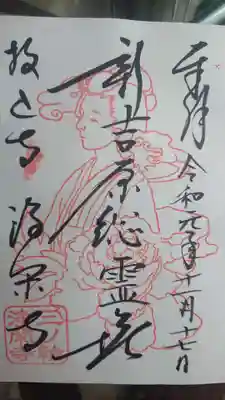 奉拝 令和元年十一月十七日
新吉原総霊塔
投込寺 浄閑寺